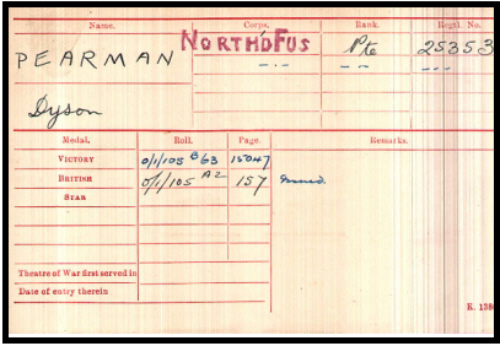 Name. Corps. Rank. Regtl. No.
PEARMAN NORTH'D FUS Pte 25353
Dyson
Medal. Roll. Page. Remarks.
VICTORY O/1/105 B63 15047
BRITISH O/1/105 A2 157
STAR
Theatre of War first served in
Date of entry therein
K. 138